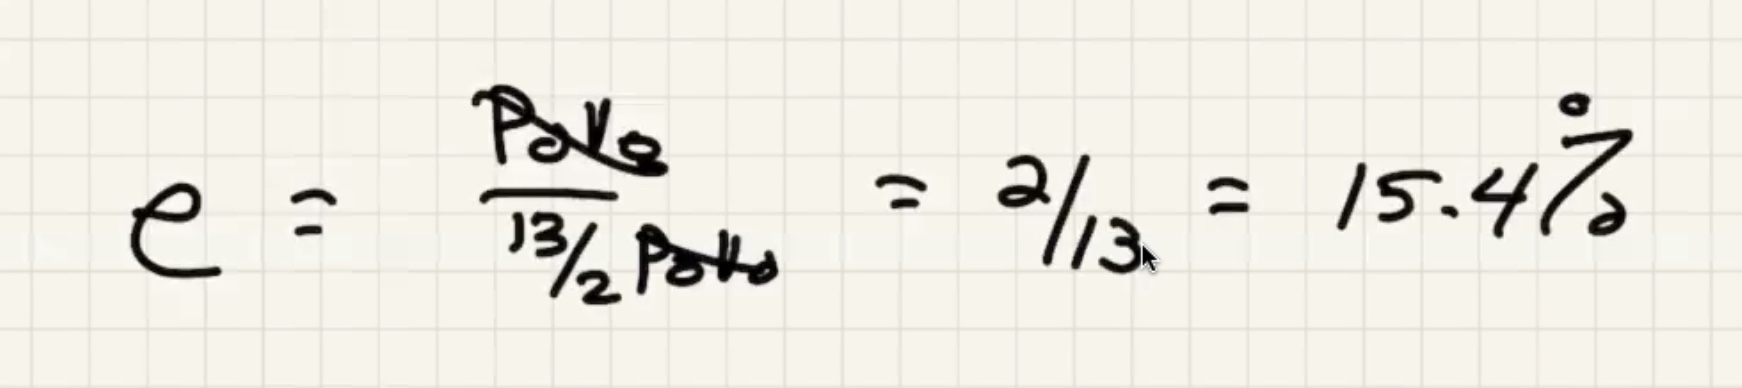 e = P₀V₀ / 13/2 P₀V₀ = 2/13 = 15.4%